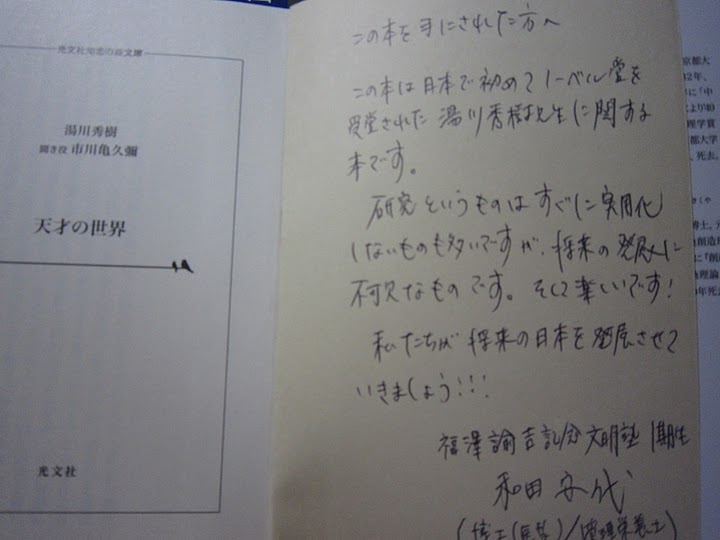 光文社知恵の森文庫
湯川秀樹
聞き役 市川亀久彌
天才の世界
光文社
この本を手にされた方へ
この本は日本で初めてノーベル賞を
受賞された湯川秀樹先生に関する
本です。
研究というものはすぐに実用化
しないものも多いですが、将来の発展に
不可欠なものです。そして楽しいです!
私たちが将来の日本を発展させて
いきましょう!!!
福澤諭吉記念文明塾 1期生
和田安代
(博士(医学)/管理栄養士)
京都大
2年、
に「中
理学賞
都大学
死去。